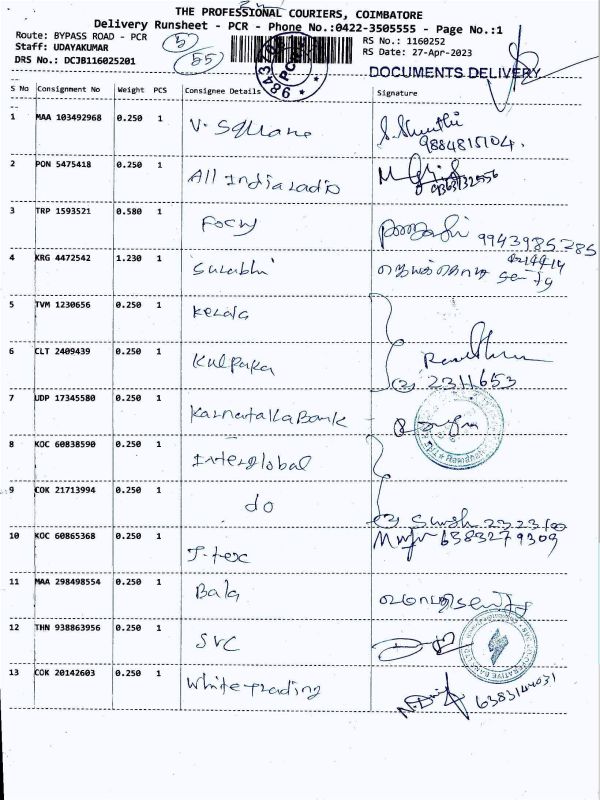 THE PROFESSIONAL COURIERS, COIMBATORE
Delivery Runsheet - PCR - Phone No.:0422-3505555 - Page No.:1
Route: BYPASS ROAD - PCR
RS No.: 1160252
Staff: UDAYAKUMAR
RS Date: 27-Apr-2023
DRS No.: DCJB116025201
5
55
DOCUMENTS DELIVERY
S No Consignment No Weight PCS Consignee Details Signature
1 MAA 103492968 0.250 1 V. Square
9884815104.
2 PON 5475418 0.250 1 All India radio
3 TRP 1593521 0.580 1
9943985285
4 KRG 4472542 1.230 1 Surabhi
5 TVM 1230656 0.250 1 Kerala
6 CLT 2409439 0.250 1 Kalpaka
2311653
7 UDP 17345580 0.250 1 Karnataka Bank
8 KOC 60838590 0.250 1 Interglobal
9 COK 21713994 0.250 1 do
10 KOC 60865368 0.250 1 J-tex
6383279309
11 MAA 298498554 0.250 1 Bala
12 THN 938863956 0.250 1 SVC
13 COK 20142603 0.250 1 White trading
6383144031